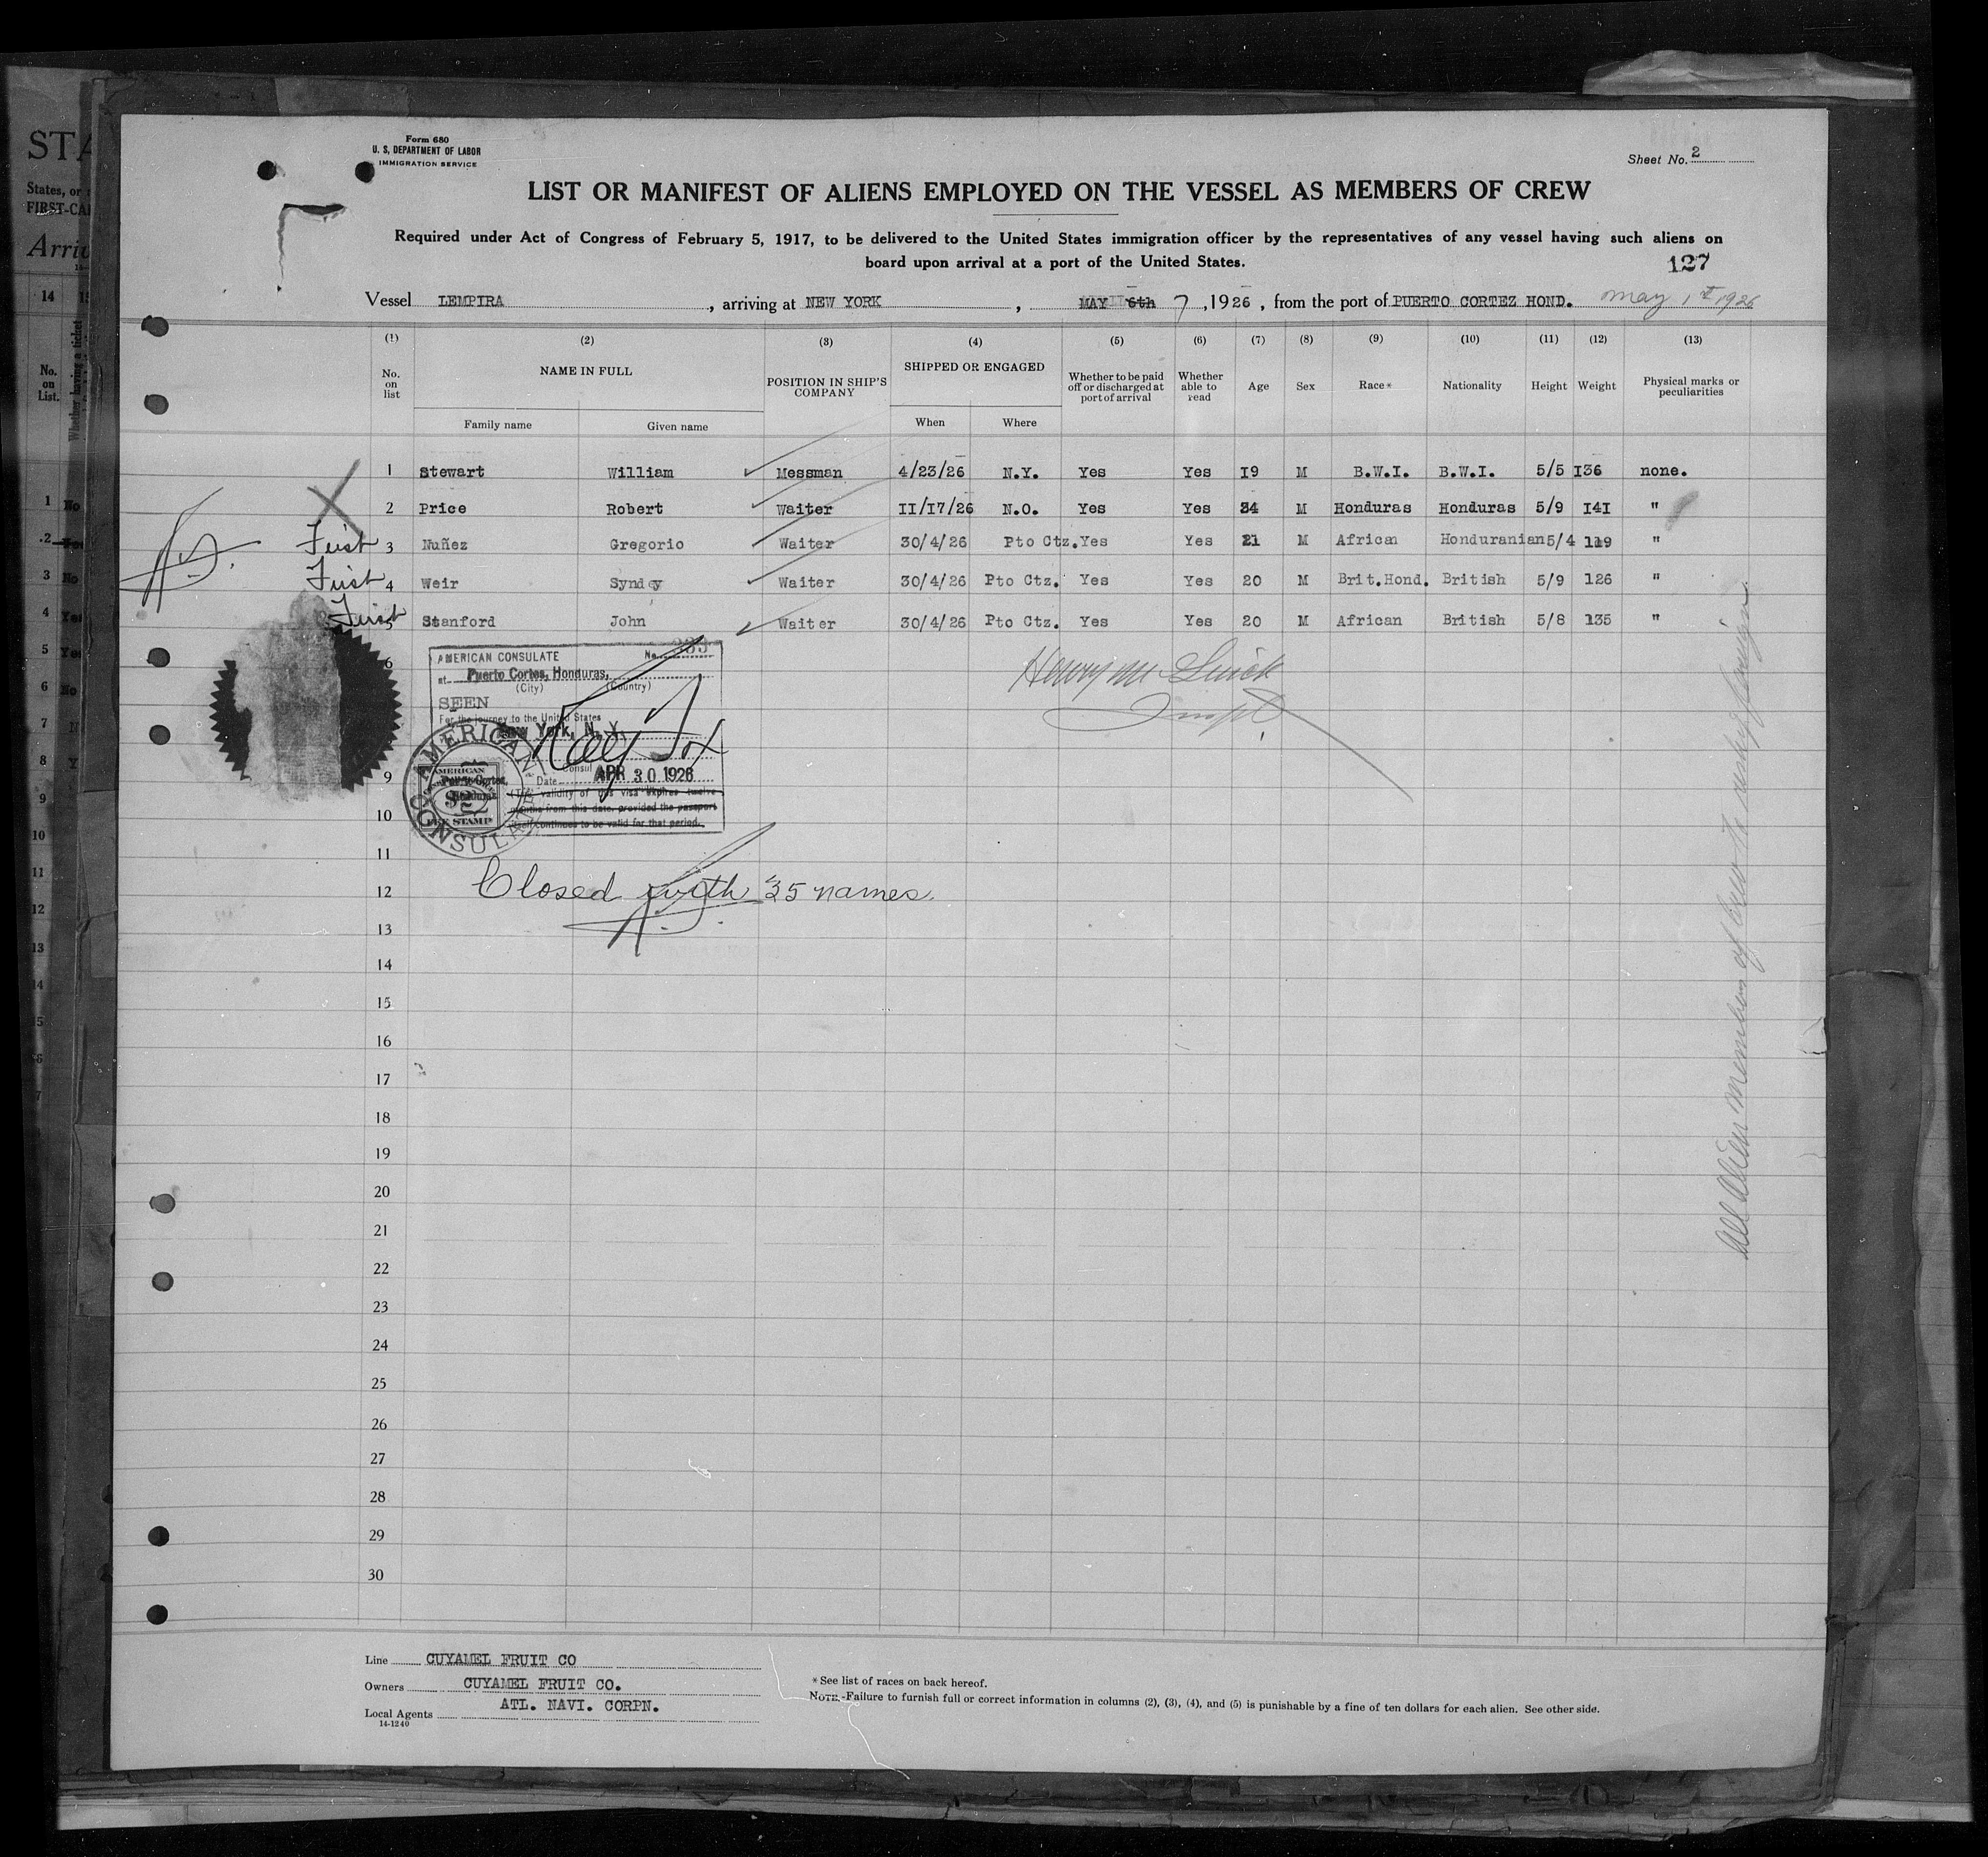 Form 680
U. S. DEPARTMENT OF LABOR
IMMIGRATION SERVICE
Sheet No. 2
LIST OR MANIFEST OF ALIENS EMPLOYED ON THE VESSEL AS MEMBERS OF CREW
Required under Act of Congress of February 5, 1917, to be delivered to the United States immigration officer by the representatives of any vessel having such aliens on
board upon arrival at a port of the United States.
127
Vessel LEMPIRA, arriving at NEW YORK, MAY 6th 7, 1926, from the port of PUERTO CORTEZ HOND. May 1st 1926
(1) (2) (3) (4) (5) (6) (7) (8) (9) (10) (11) (12) (13)
No. on list NAME IN FULL POSITION IN SHIP'S COMPANY SHIPPED OR ENGAGED Whether to be paid off or discharged at port of arrival Whether able to read Age Sex Race* Nationality Height Weight Physical marks or peculiarities
Family name Given name When Where
1 Stewart William Messman 4/23/26 N.Y. Yes Yes I9 M B.W.I. B.W.I. 5/5 I36 none.
2 Price Robert Waiter II/I7/26 N.O. Yes Yes 34 M Honduras Honduras 5/9 I4I "
First 3 Nuñez Gregorio Waiter 30/4/26 Pto Ctz. Yes Yes 21 M African Honduranian 5/4 119 "
First 4 Weir Syndey Waiter 30/4/26 Pto Ctz. Yes Yes 20 M Brit.Hond. British 5/9 126 "
First 5 Stanford John Waiter 30/4/26 Pto Ctz. Yes Yes 20 M African British 5/8 135 "
6
AMERICAN CONSULATE No. 333
at Puerto Cortes, Honduras,
(City) (Country)
SEEN
For the journey to the United States
New York, N. Y.
Consul
Date APR 30 1926
The validity of this visa expires twelve
months from this date, provided the passport
itself continues to be valid for that period.
AMERICAN CONSULATE
AMERICAN
Puerto Cortes,
Honduras
FEE STAMP
9
10
11
12 Closed with 35 names.
13
14
15
16
17
18
19
20
21
22
23
24
25
26
27
28
29
30
All Alien members of crew to reship foreign.
Line CUYAMEL FRUIT CO
Owners CUYAMEL FRUIT CO.
Local Agents ATL. NAVI. CORPN.
14-1240
*See list of races on back hereof.
NOTE.-Failure to furnish full or correct information in columns (2), (3), (4), and (5) is punishable by a fine of ten dollars for each alien. See other side.